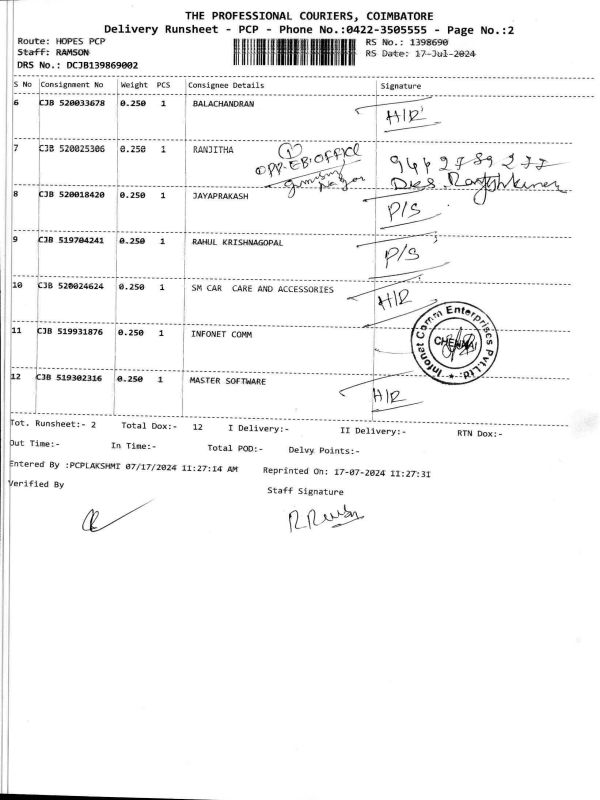 THE PROFESSIONAL COURIERS, COIMBATORE
Delivery Runsheet - PCP - Phone No.:0422-3505555 - Page No.:2
Route: HOPES PCP
RS No.: 1398690
Staff: RAMSON
RS Date: 17-Jul-2024
DRS No.: DCJB139869002
S No Consignment No Weight PCS Consignee Details Signature
6 CJB 520033678 0.250 1 BALACHANDRAN H/R
7 CJB 520025306 0.250 1 RANJITHA
1
OPP-EB-OFFICE
8 CJB 520018420 0.250 1 JAYAPRAKASH P/S
9 CJB 519704241 0.250 1 RAHUL KRISHNAGOPAL P/S
10 CJB 520024624 0.250 1 SM CAR CARE AND ACCESSORIES H/R
11 CJB 519931876 0.250 1 INFONET COMM
Infonet Comm Enterprises Pvt.Ltd.
CHENNAI
12 CJB 519302316 0.250 1 MASTER SOFTWARE H/R
Tot. Runsheet:- 2 Total Dox:- 12 I Delivery:- II Delivery:- RTN Dox:-
Out Time:- In Time:- Total POD:- Delvy Points:-
Entered By :PCPLAKSHMI 07/17/2024 11:27:14 AM Reprinted On: 17-07-2024 11:27:31
Verified By Staff Signature